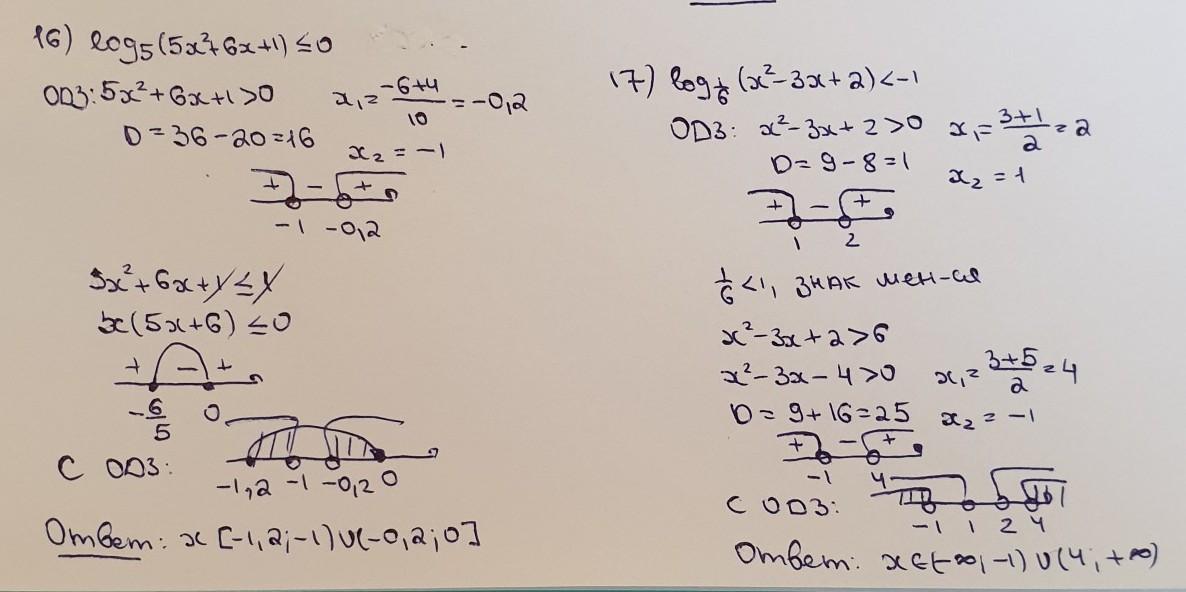 16) log₅(5x²+6x+1) ≤ 0
ОДЗ: 5x²+6x+1>0   x₁ = (-6+4)/10 = -0,2
D = 36-20 = 16   x₂ = -1
+ - +
-1 -0,2
5x²+6x+1 ≤ 1
x(5x+6) ≤ 0
+ - +
-6/5 0
С ОДЗ:
-1,2 -1 -0,2 0
Ответ: x [-1,2;-1)∪(-0,2;0]
17) log_{1/6} (x²-3x+2) < -1
ОДЗ: x²-3x+2>0   x₁ = (3+1)/2 = 2
D = 9-8 = 1   x₂ = 1
+ - +
1 2
1/6 <1, знак мен-ся
x²-3x+2>6
x²-3x-4>0   x₁ = (3+5)/2 = 4
D = 9+16 = 25   x₂ = -1
+ - +
-1 4
С ОДЗ:
-1 1 2 4
Ответ: x∈(-∞;-1)∪(4;+∞)